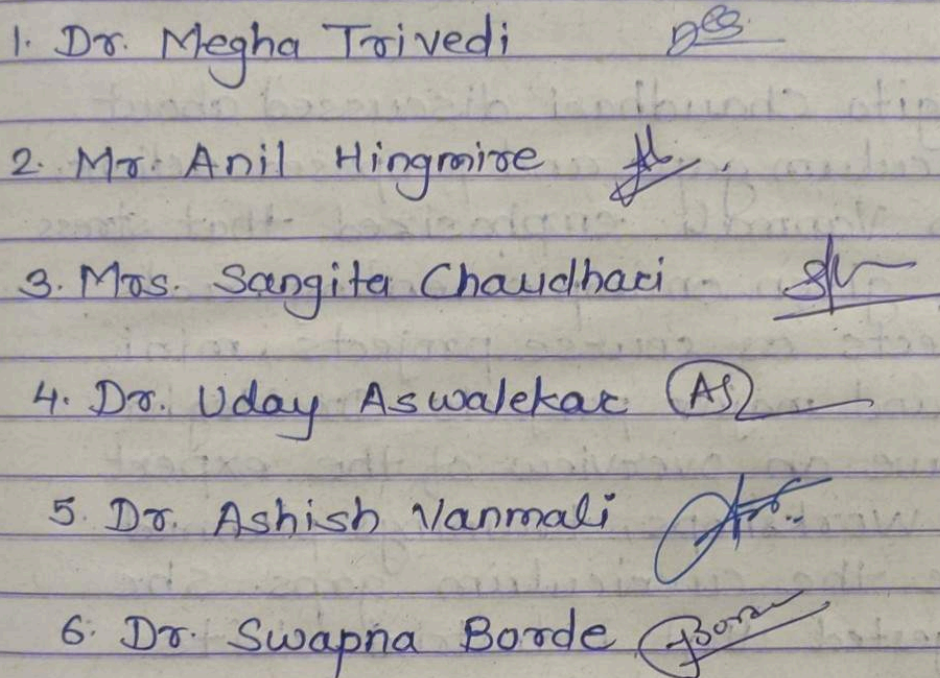 1. Dr. Megha Trivedi
2. Mr. Anil Hingmire
3. Mrs. Sangita Chaudhari
4. Dr. Uday Aswalekar AS
5. Dr. Ashish Vanmali
6. Dr. Swapna Borde